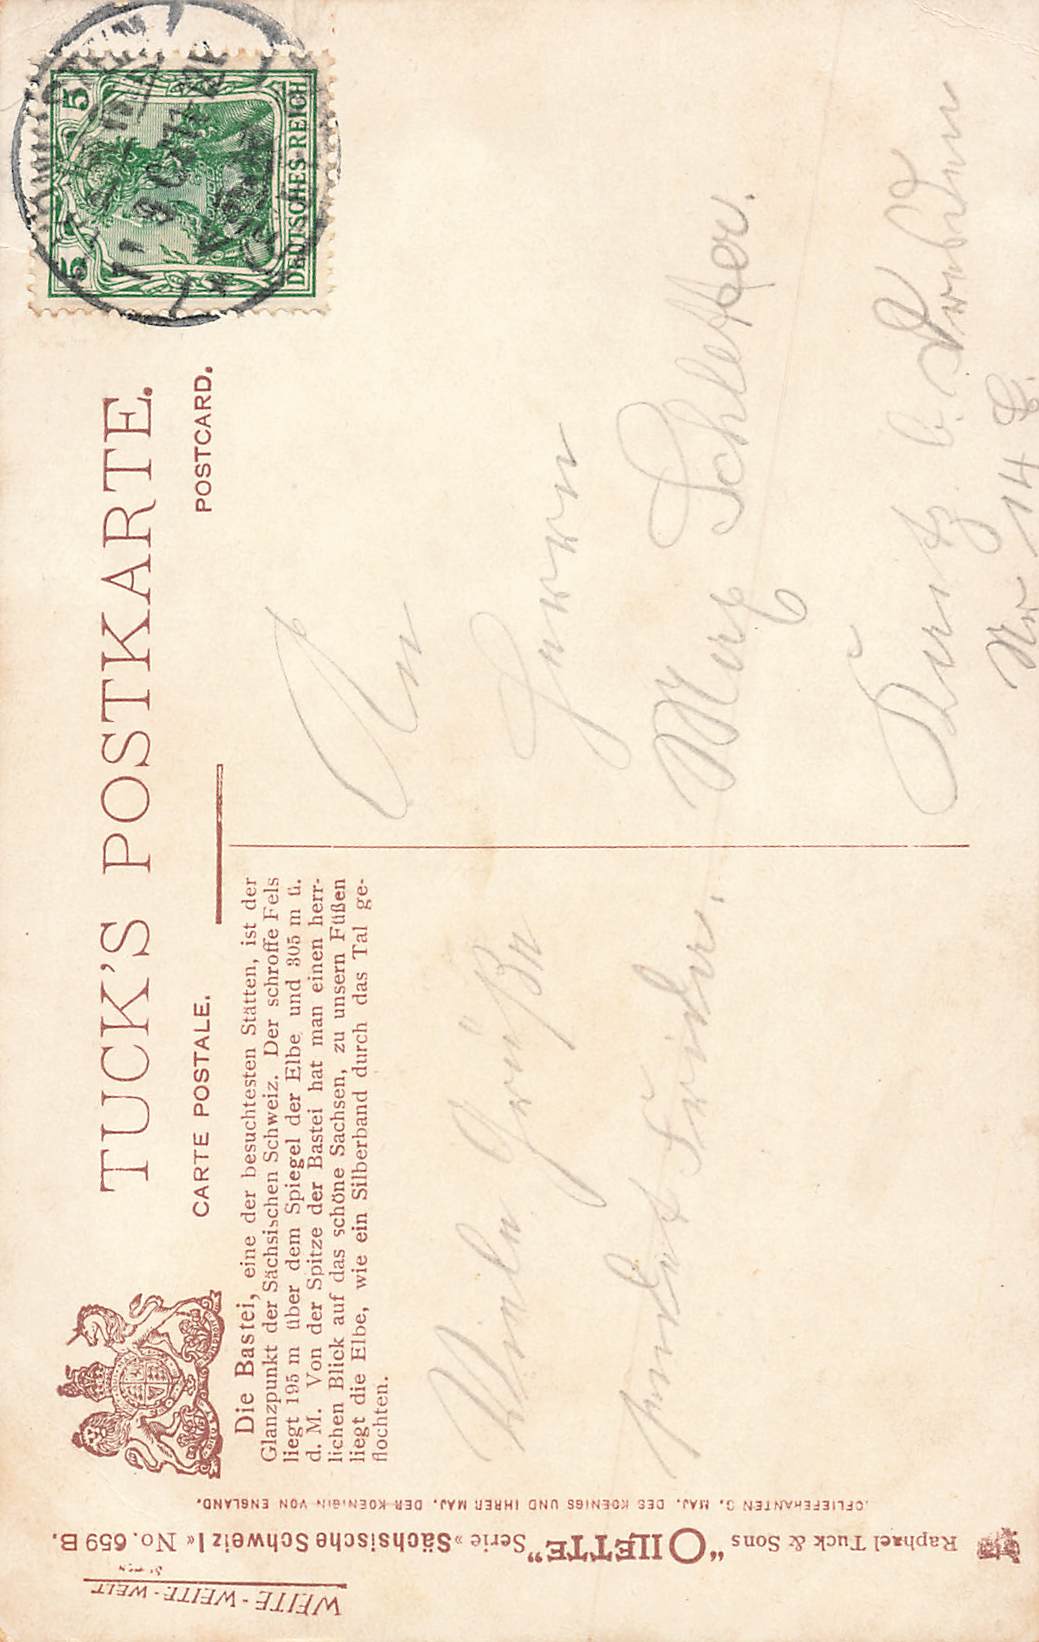 TUCK'S POSTKARTE.
CARTE POSTALE.
POSTCARD.
DEUTSCHES REICH
5
5
Die Bastei, eine der besuchtesten Stätten, ist der
Glanzpunkt der Sächsischen Schweiz. Der schroffe Fels
liegt 195 m über dem Spiegel der Elbe und 305 m ü.
d. M. Von der Spitze der Bastei hat man einen herr-
lichen Blick auf das schöne Sachsen, zu unsern Füßen
liegt die Elbe, wie ein Silberband durch das Tal ge-
flochten.
Viele Grüße
sendet
An
Herrn
Max Schletter.
b. Dresden
Nr 14
Raphael Tuck & Sons "OILETTE" Serie »Sächsische Schweiz I« No. 659 B.
HOFLIEFERANTEN S. MAJ. DES KOENIGS UND IHRER MAJ. DER KOENIGIN VON ENGLAND.
WEITE-WEITE-WELT